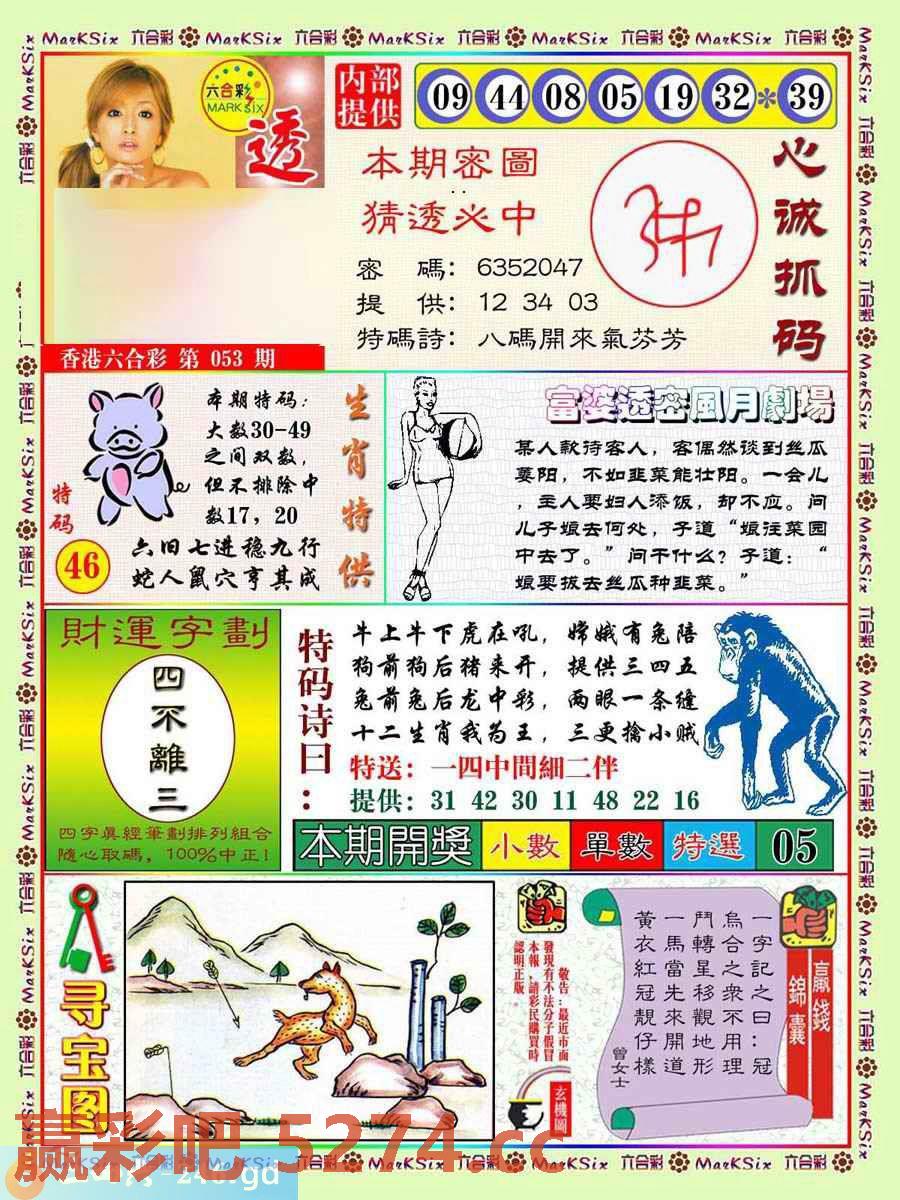 MarKSix 六合彩 MarKSix 六合彩 MarKSix 六合彩 MarKSix 六合彩 MarKSix 六合彩
六合彩
MARK SIX
透
内部
提供
09 44 08 05 19 32 * 39
本期密圖
猜透必中
密 碼：6352047
提 供：12 34 03
特碼詩：八碼開來氣芬芳
心诚抓码
香港六合彩 第 053 期
特码
46
本期特码：
大数30-49
之间双数，
但不排除中
数17，20
六旧七进稳九行
蛇人鼠穴亨其成
生肖特供
富婆透密風月劇場
某人款待客人，客偶然谈到丝瓜
萎阳，不如韭菜能壮阳。一会儿
，主人要妇人添饭，却不应。问
儿子娘去何处，子道“娘往菜园
中去了。”问干什么？子道：“
娘要拔去丝瓜种韭菜。”
財運字劃
四不離三
四字真經筆劃排列組合
隨心取碼，100%中正！
特码诗曰：
牛上牛下虎在吼，嫦娥有兔陪
狗前狗后猪来开，提供三四五
兔前兔后龙中彩，两眼一条缝
十二生肖我为王，三更擒小贼
特送：一四中間細二伴
提供：31 42 30 11 48 22 16
本期開獎 小數 單數 特選 05
寻宝图
敬告：最近市面
發現有不法分子假冒
本報，請彩民購買時
認明正版。
玄機圖
一字記之曰：冠
烏合之衆不用理
鬥轉星移觀地形
一馬當先來開道
黃衣紅冠靚仔樣
曾女士
贏錢
錦囊
赢彩吧 5274.cc
MarKSix 六合彩 MarKSix 六合彩 MarKSix 六合彩 MarKSix 六合彩